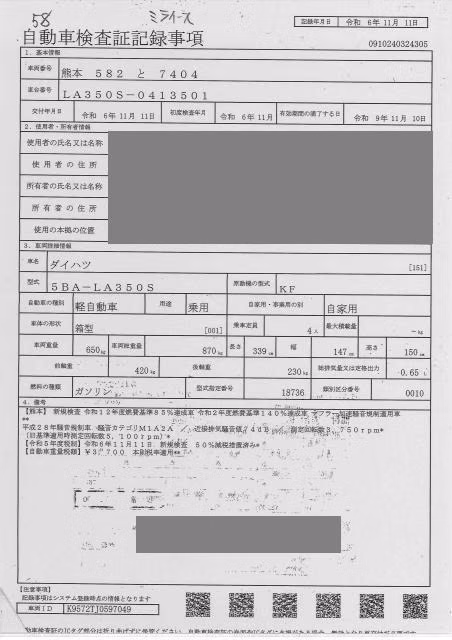 58 ミライース
記録年月日 令和 6年11月 11日
自動車検査証記録事項
0910240324305
1. 基本情報
車両番号 熊本 582 と 7404
車台番号 LA350S-0413501
交付年月日 令和 6年11月 11日 初度検査年月 令和 6年11月 有効期間の満了する日 令和 9年11月 10日
2. 使用者・所有者情報
使用者の氏名又は名称
使用者の住所
所有者の氏名又は名称
所有者の住所
使用の本拠の位置
3. 車両詳細情報
車名 ダイハツ [151]
型式 5BA-LA350S 原動機の型式 KF
自動車の種別 軽自動車 用途 乗用 自家用・事業用の別 自家用
車体の形状 箱型 [001] 乗車定員 4人 最大積載量 -kg
車両重量 650kg 車両総重量 870kg 長さ 339cm 幅 147cm 高さ 150cm
前軸重 420kg 後軸重 230kg 総排気量又は定格出力 0.65L
燃料の種類 ガソリン 型式指定番号 18736 類別区分番号 0010
4. 備考
【熊本】 新規検査 令和12年度燃費基準85%達成車 令和2年度燃費基準140%達成車 マフラー加速騒音規制適用車
**
平成28年騒音規制車 騒音カテゴリM1A2A 近接排気騒音値 測定回転数3,750rpm*
(旧基準適用時測定回転数5,100rpm)*
【令和5年度税制】令和6年11月11日 新規検査 50%減税措置済み*
【自動車重量税額】¥3,700 本則税率適用**
【注意事項】
記録事項はシステム登録時点の情報となります
車両ID K9572TJ0597049